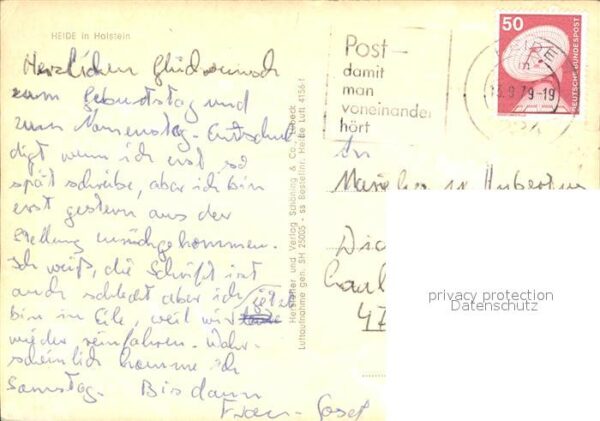 HEIDE in Holstein
Herzlichen Glückwunsch
zum Geburtstag und
zum Namenstag. Entschul
digt wenn ich erst so
spät schreibe, aber ich bin
erst gestern aus der
Stellung zurückgekommen.
Ich weiß, die Schrift ist
auch schlecht aber ich
bin in Eile, weil wir jetzt
wieder reinfahren. Wahr-
scheinlich komme ich
Samstag. Bis dann
Franz-Josef
Hersteller und Verlag Schöning & Co., Lübeck
Luftaufnahme gen. SH 25005 - ss Bestellnr. Heide Luft 4156-t
Post-
damit
man
voneinander
hört
HEIDE
9.79-19
50
DEUTSCHE BUNDESPOST
An
47
privacy protection
Datenschutz